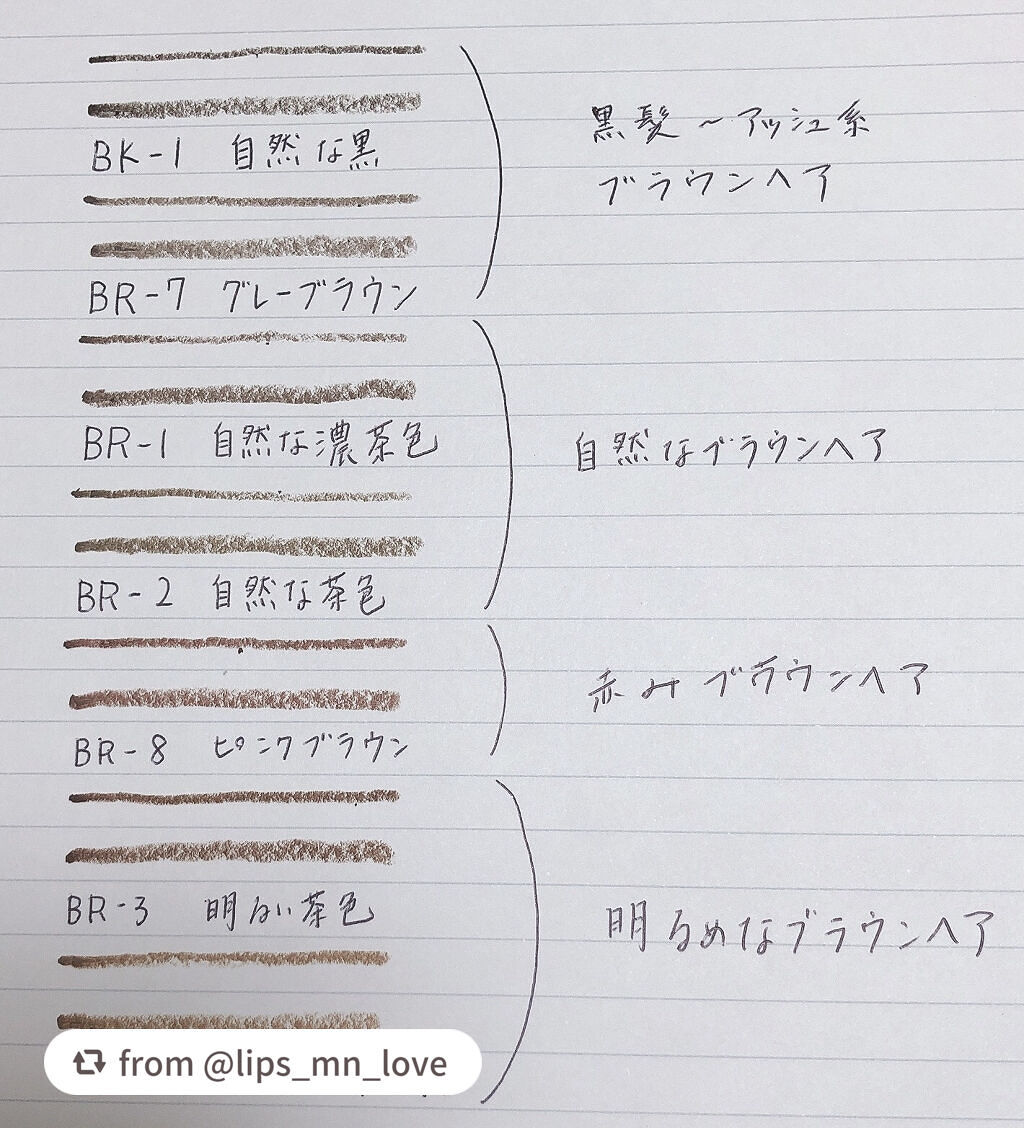 BK-1 自然な黒
黒髪~アッシュ系
ブラウンヘア
BR-7 グレーブラウン
BR-1 自然な濃茶色
自然なブラウンヘア
BR-2 自然な茶色
BR-8 ピンクブラウン
赤みブラウンヘア
BR-3 明るい茶色
明るめなブラウンヘア
from @lips_mn_love